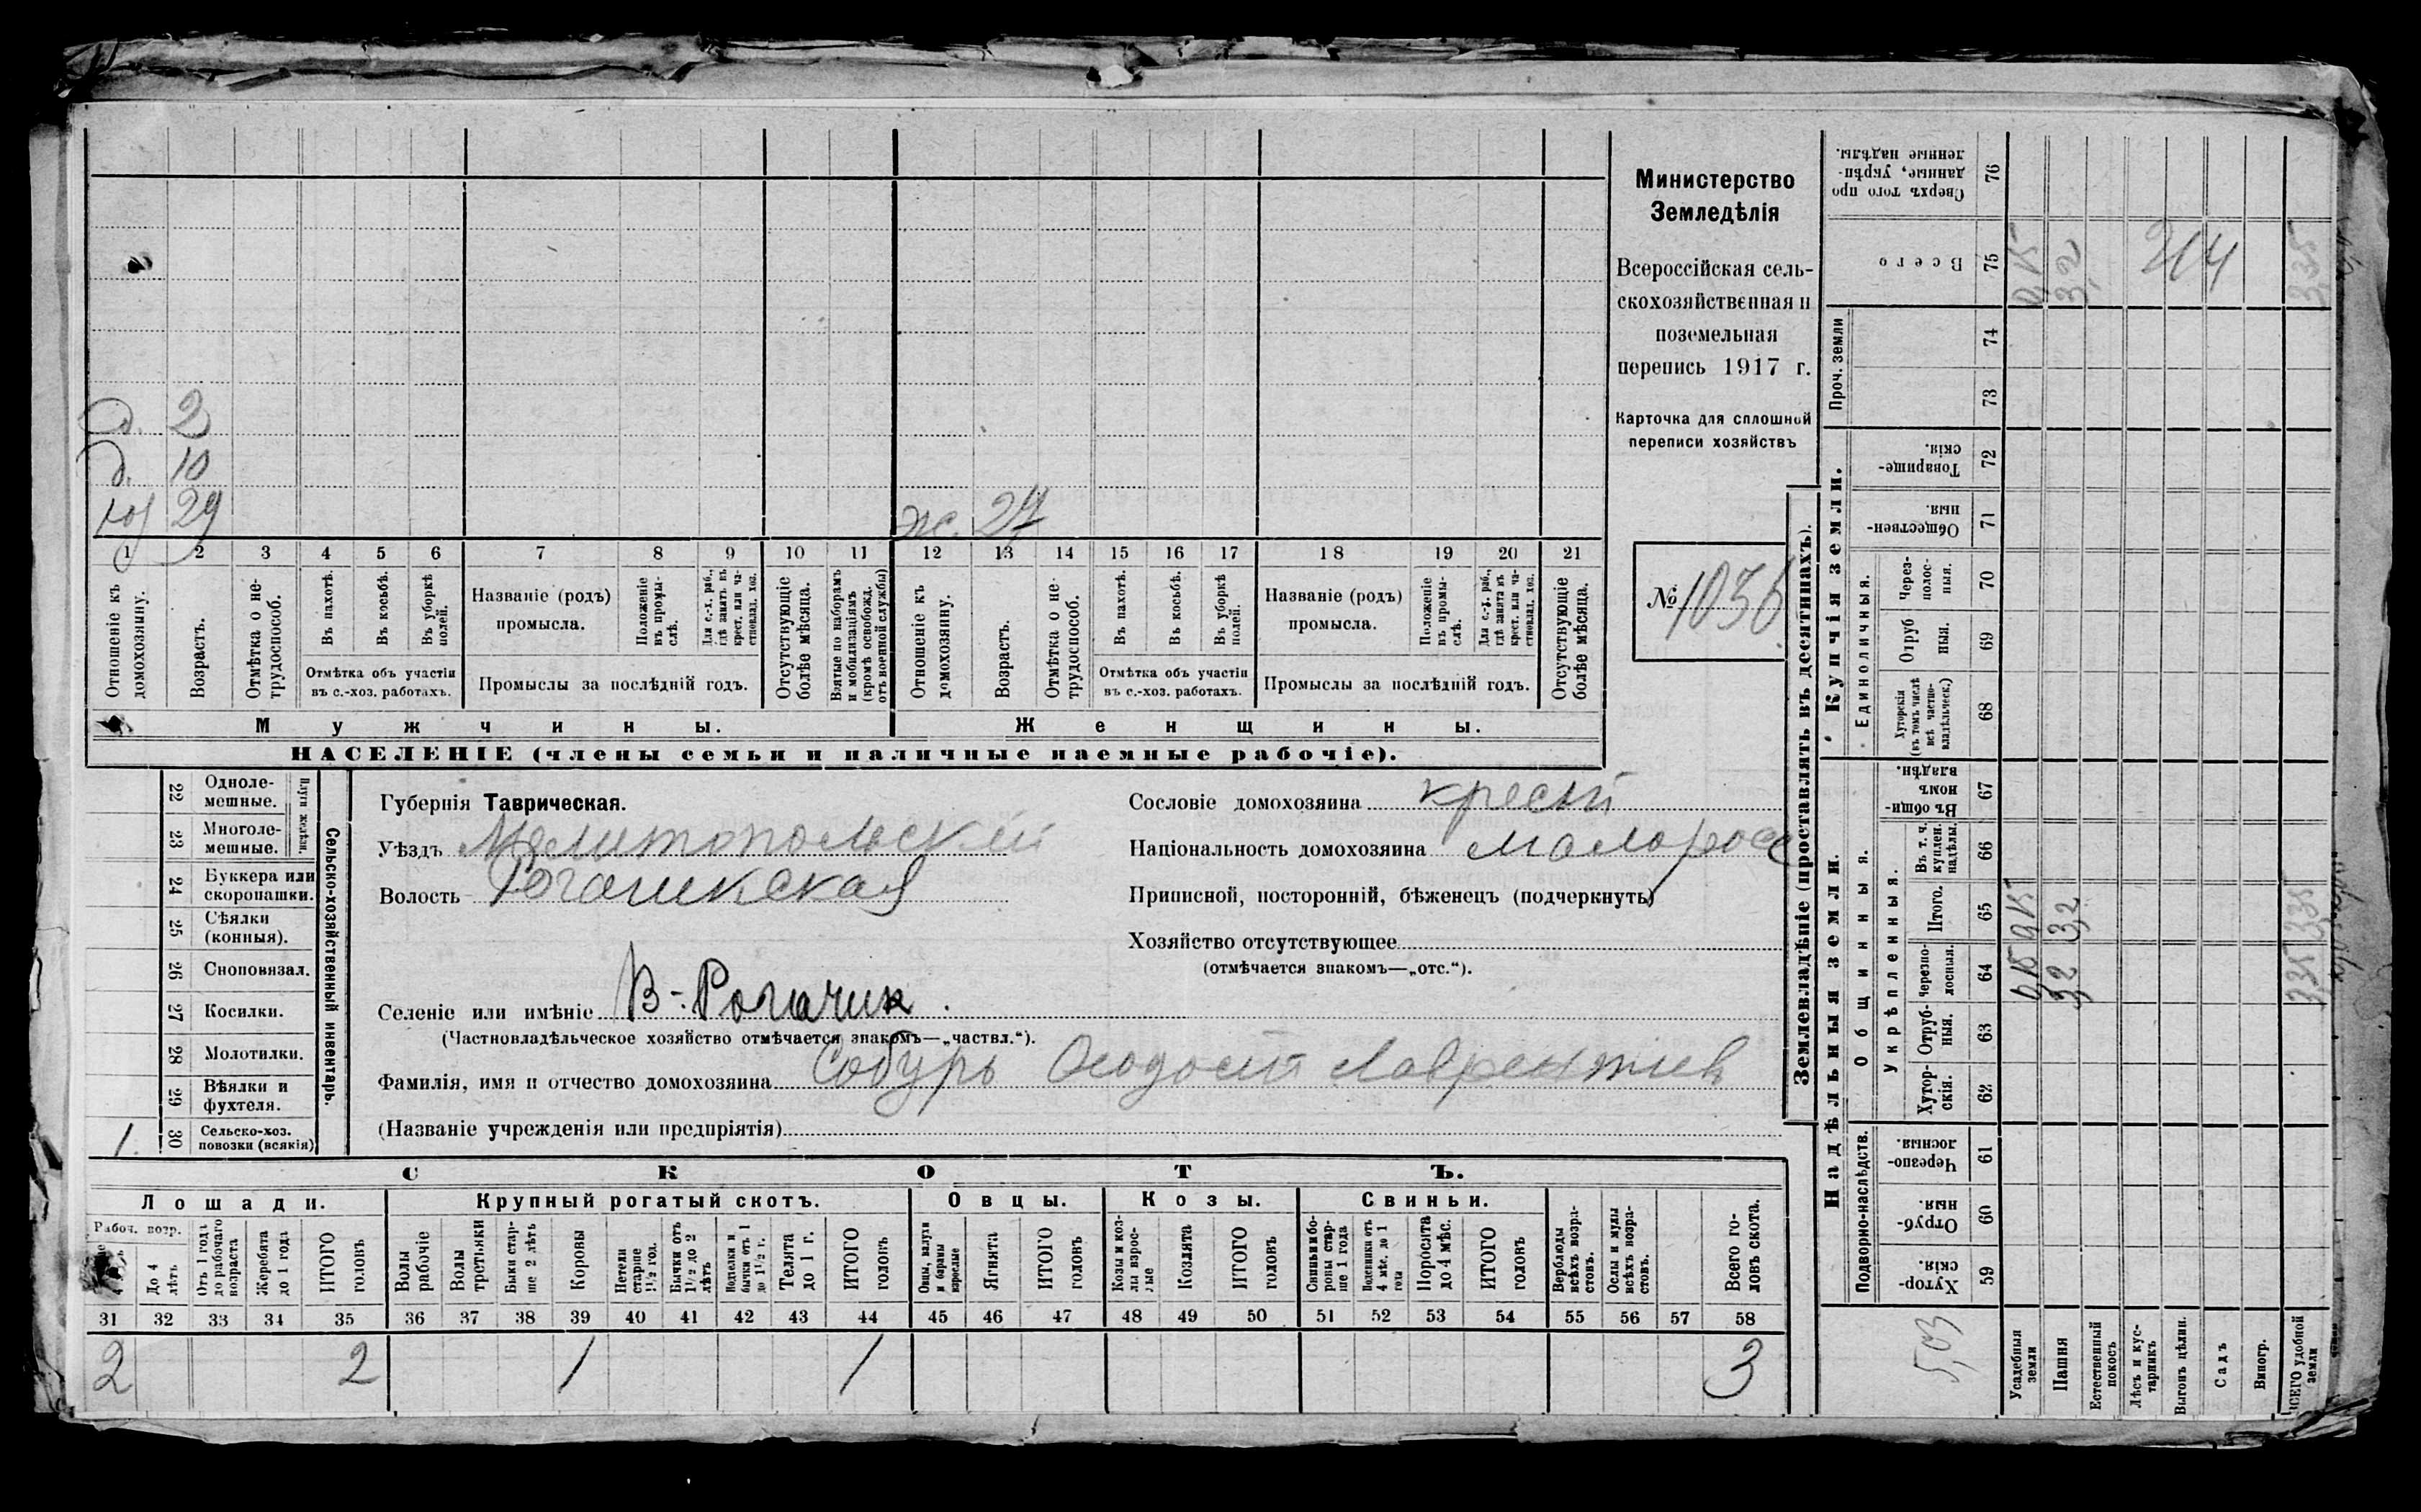 д. 2
д. 10
хоз 29
ж. 27
1 2 3 4 5 6 7 8 9 10 11 12 13 14 15 16 17 18 19 20 21
Отношеніе къ домохозяину.
Возрастъ.
Отмѣтка о не-трудоспособ.
Въ пахотѣ.
Въ косьбѣ.
Въ уборкѣ полей.
Отмѣтка объ участіи
въ с.-хоз. работахъ.
Названіе (родъ)
промысла.
Положеніе въ промы-слѣ.
Для с.-х. раб., гдѣ занятъ въ крест. или ча-стновлад. хоз.
Промыслы за послѣдній годъ.
Отсутствующіе болѣе мѣсяца.
Взятые по наборамъ и мобилизаціямъ (кромѣ освобожд. отъ военной службы)
Отношеніе къ домохозяину.
Возрастъ.
Отмѣтка о не-трудоспособ.
Въ пахотѣ.
Въ косьбѣ.
Въ уборкѣ полей.
Отмѣтка объ участіи
въ с.-хоз. работахъ.
Названіе (родъ)
промысла.
Положеніе въ промы-слѣ.
Для с.-х. раб., гдѣ занята въ крест. или ча-стновлад. хоз.
Промыслы за послѣдній годъ.
Отсутствующіе болѣе мѣсяца.
Мужчины. Женщины.
НАСЕЛЕНІЕ (члены семьи и наличные наемные рабочіе).
Министерство
Земледѣлія
Всероссійская сель-
скохозяйственная и
поземельная
перепись 1917 г.
Карточка для сплошной
переписи хозяйствъ
№ 1036
22 Одноле-мешные.
23 Многоле-мешные.
Плуги желѣзн.
24 Буккера или скоропашки.
25 Сѣялки (конныя).
26 Сноповязал.
27 Косилки.
28 Молотилки.
29 Вѣялки и фухтеля.
1. 30 Сельско-хоз. повозки (всякія)
Сельско-хозяйственный инвентарь.
Губернія Таврическая.
Уѣздъ Мелитопольскій
Волость Рогачикская
Сословіе домохозяина крест
Національность домохозяина малоросс
Приписной, посторонній, бѣженецъ (подчеркнуть)
Хозяйство отсутствующее
(отмѣчается знакомъ—„отс.“).
Селеніе или имѣніе В-Рогачик.
(Частновладѣльческое хозяйство отмѣчается знакомъ—„частвл.“).
Фамилія, имя и отчество домохозяина Собурь Феодосій Лаврентіев
(Названіе учрежденія или предпріятія)
СКОТЪ.
Лошади. Крупный рогатый скотъ. Овцы. Козы. Свиньи.
Рабоч. возр.
До 4 лѣтъ
Отъ 1 года до рабочаго возраста
Жеребята до 1 года
ИТОГО головъ
Волы рабочіе
Волы третьяки
Быки стар-ше 2 лѣтъ
Коровы
Нетели старше 1½ год.
Бычки отъ 1½ до 2 лѣтъ
Подтелки и бычки отъ 1 до 1½ г.
Телята до 1 г.
ИТОГО головъ
Овцы, валухи и бараны взрослые
Ягнята
ИТОГО головъ
Козы и коз-лы взрос-лые
Козлята
ИТОГО головъ
Свиньи и бо-ровы стар-ше 1 года
Подсвинки отъ 4 мѣс. до 1 года
Поросята до 4 мѣс.
ИТОГО головъ
Верблюды всѣхъ возра-стовъ.
Ослы и мулы всѣхъ возра-стовъ.
Всего го-ловъ скота.
31 32 33 34 35 36 37 38 39 40 41 42 43 44 45 46 47 48 49 50 51 52 53 54 55 56 57 58
2 2 1 1 3
Землевладѣніе (проставлять въ десятинахъ).
Сверхъ того про данные, укрѣп-ленные надѣлы. 76
Всего 75 3,2 3,35
Проч. земли 74 73
Купчія земли.
Товарище-скія. 72
Обществен-ныя. 71
Единоличныя.
Через-полос-ныя. 70
Отруб ныя. 69
Хуторскія (въ томъ числѣ всѣ частно-владѣльческ.) 68
Надѣльныя земли.
Общинныя.
Въ общи-номъ владѣн. 67
Укрѣпленныя.
Въ т. ч. куплен. надѣлы. 66
Итого. 65 3,2 3,35
Черезпо-лосныя. 64 3,2 3,35
Отруб-ныя. 63
Хутор-скія. 62
Подворно-наслѣдств.
Черезпо-лосныя. 61
Отруб-ныя. 60
Хутор-скія. 59
5,03
Усадебныя земли
Пашня
Естественный покосъ
Лѣсъ и кус-тарникъ
Выгонъ цѣлин.
Садъ
Виногр.
ВСЕГО удобной земли